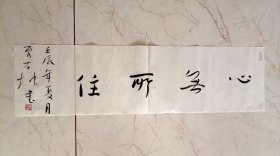 心無所住
壬辰年夏月